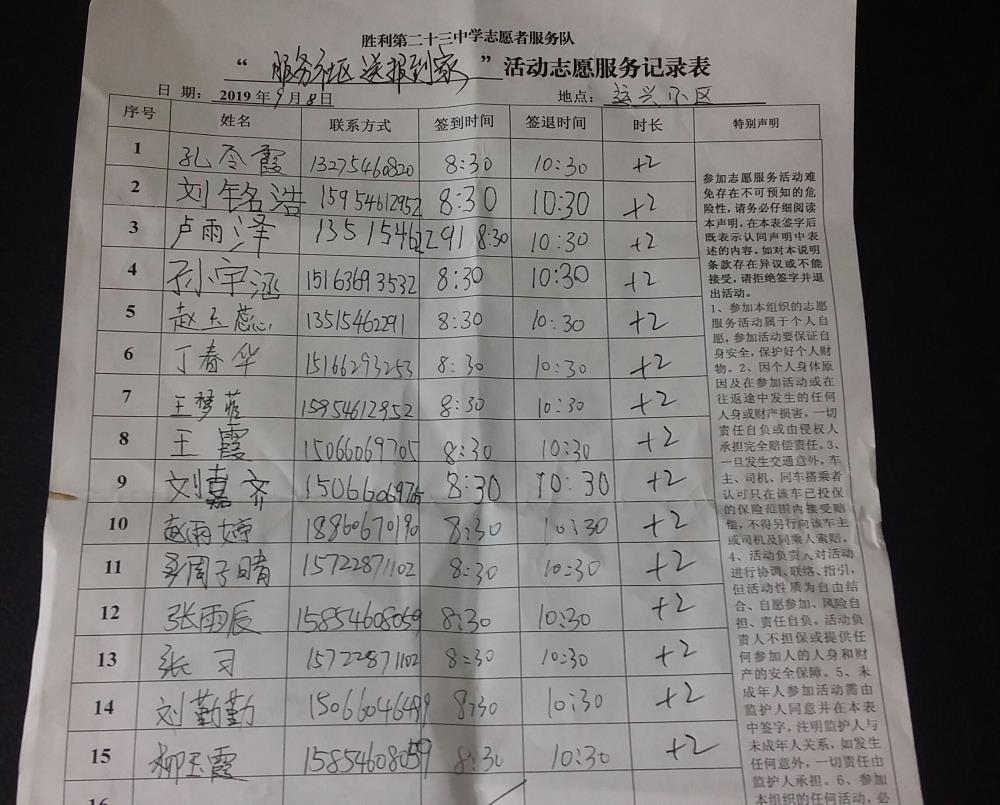 胜利第二十三中学志愿者服务队
“ 服务社区 送报到家 ” 活动志愿服务记录表
日 期： 2019 年 9 月 8 日 地点：运兴小区
序号 姓名 联系方式 签到时间 签退时间 时长 特别声明
1 孔令霞 13275460820 8:30 10:30 +2
2 刘铭浩 15954612952 8:30 10:30 +2
3 卢雨泽 13515462291 8:30 10:30 +2
4 孙宇涵 15163693532 8:30 10:30 +2
5 赵玉蕊 13515462291 8:30 10:30 +2
6 丁春华 15166293253 8:30 10:30 +2
7 王梦菲 15954612952 8:30 10:30 +2
8 王霞 15066069705 8:30 10:30 +2
9 刘嘉齐 15066069705 8:30 10:30 +2
10 赵雨婷 18860670190 8:30 10:30 +2
11 周子晴 15722871102 8:30 10:30 +2
12 张雨辰 15854608059 8:30 10:30 +2
13 张习 15722871102 8:30 10:30 +2
14 刘勤勤 15066046499 8:30 10:30 +2
15 柳玉霞 15854608059 8:30 10:30 +2
16
参加志愿服务活动难
免存在不可预知的危
险性，请务必仔细阅读
本声明，在本表签字后
既表示认同声明中表
述的内容。如对本说明
条款存在异议或不能
接受，请拒绝签字并退
出活动。
1、参加本组织的志愿
服务活动属于个人自
愿，参加活动要保证自
身安全，保护好个人财
物。2、因个人身体原
因及在参加活动或在
往返途中发生的任何
人身或财产损害，一切
责任自负或由侵权人
承担完全赔偿责任。3、
一旦发生交通意外，车
主、司机、同车搭乘者
认可只在该车已投保
的保险范围内接受赔
偿，不得另行向该车主
或司机及同乘人索赔。
4、活动负责人对活动
进行协调、联络、指引，
但活动性质为自由结
合、自愿参加、风险自
担、责任自负。活动负
责人不担保或提供任
何参加人的人身和财
产的安全保障。5、未
成年人参加活动需由
监护人同意并在本表
中签字，注明监护人与
未成年人关系，如发生
任何意外，一切责任由
监护人承担。6、参加
本组织的任何活动，必